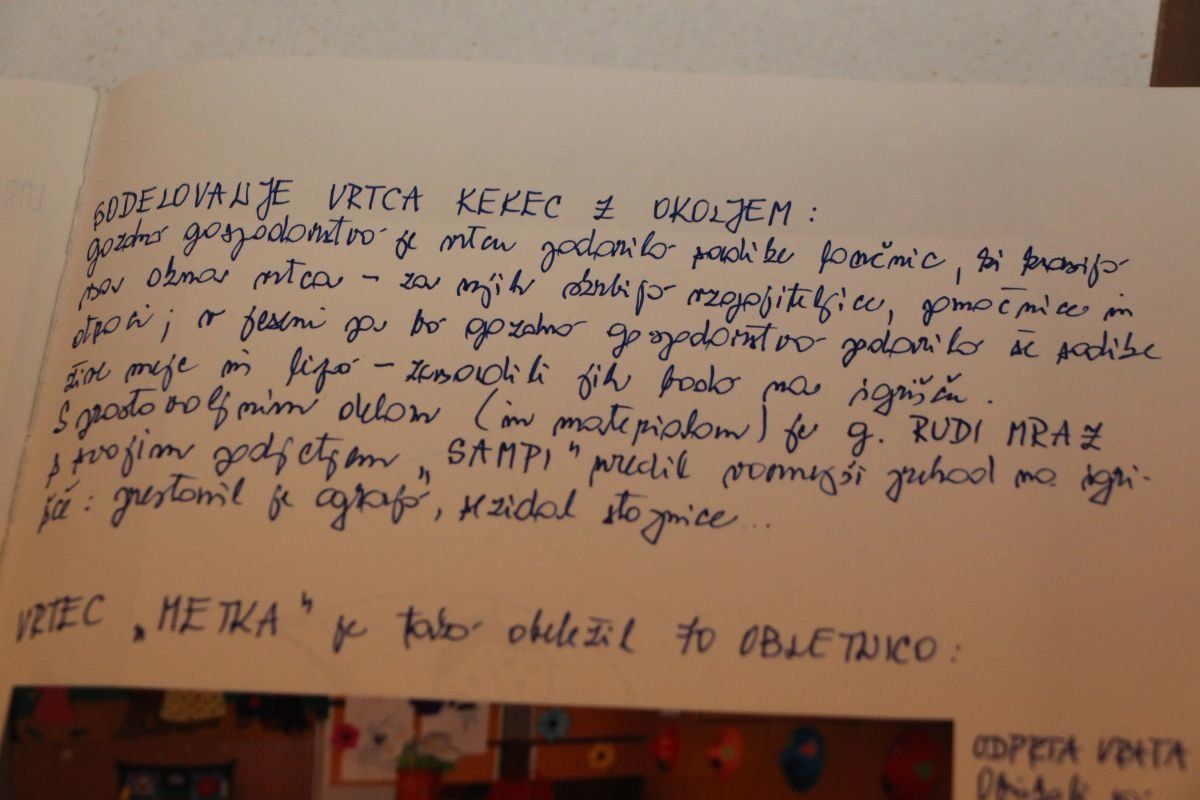 SODELOVANJE VRTCA KEKEC Z OKOLJEM:
gozdno gospodarstvo je vrtcu podarilo sadike lončnic, ki krasijo
vsa okna vrtca – za njih skrbijo vzgojiteljice, pomočnice in
otroci; v jeseni pa bo gozdno gospodarstvo podarilo še sadike
žive meje in lipo – zasadili jih bodo na igrišču.
S prostovoljnim delom (in materialom) je g. RUDI MRAZ
s svojim podjetjem „SAMPI" uredil varnejši prehod na igri-
šče: prestavil je ograjo, sezidal stopnice...
VRTEC „METKA" je tako obeležil 70 OBLETNICO:
ODPRTA VRATA